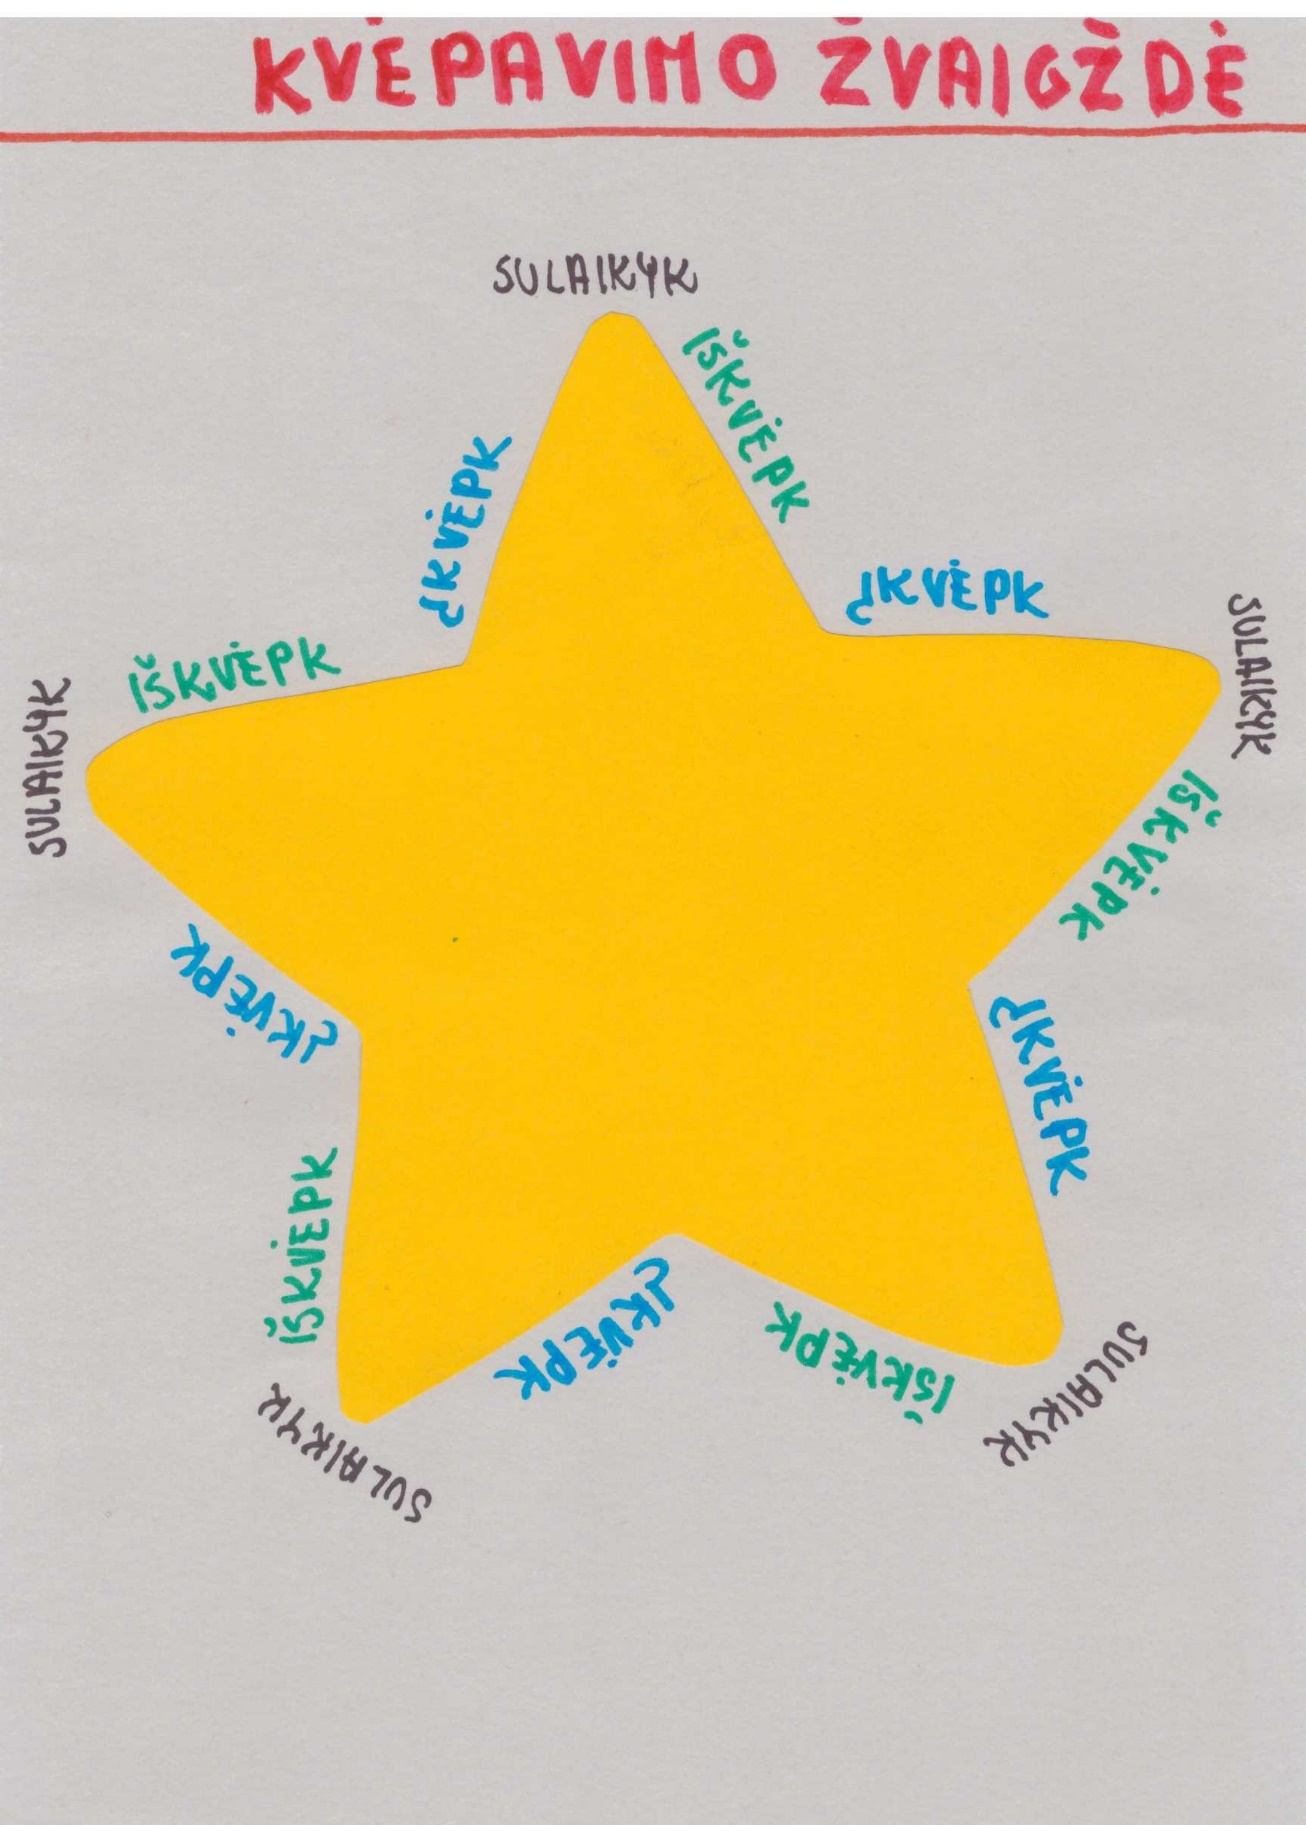 KVĖPAVIMO ŽVAIGŽDĖ
SULAIKYK
IŠKVĖPK
ĮKVĖPK
SULAIKYK
IŠKVĖPK
ĮKVĖPK
SULAIKYK
IŠKVĖPK
ĮKVĖPK
SULAIKYK
IŠKVĖPK
ĮKVĖPK
SULAIKYK
IŠKVĖPK
ĮKVĖPK